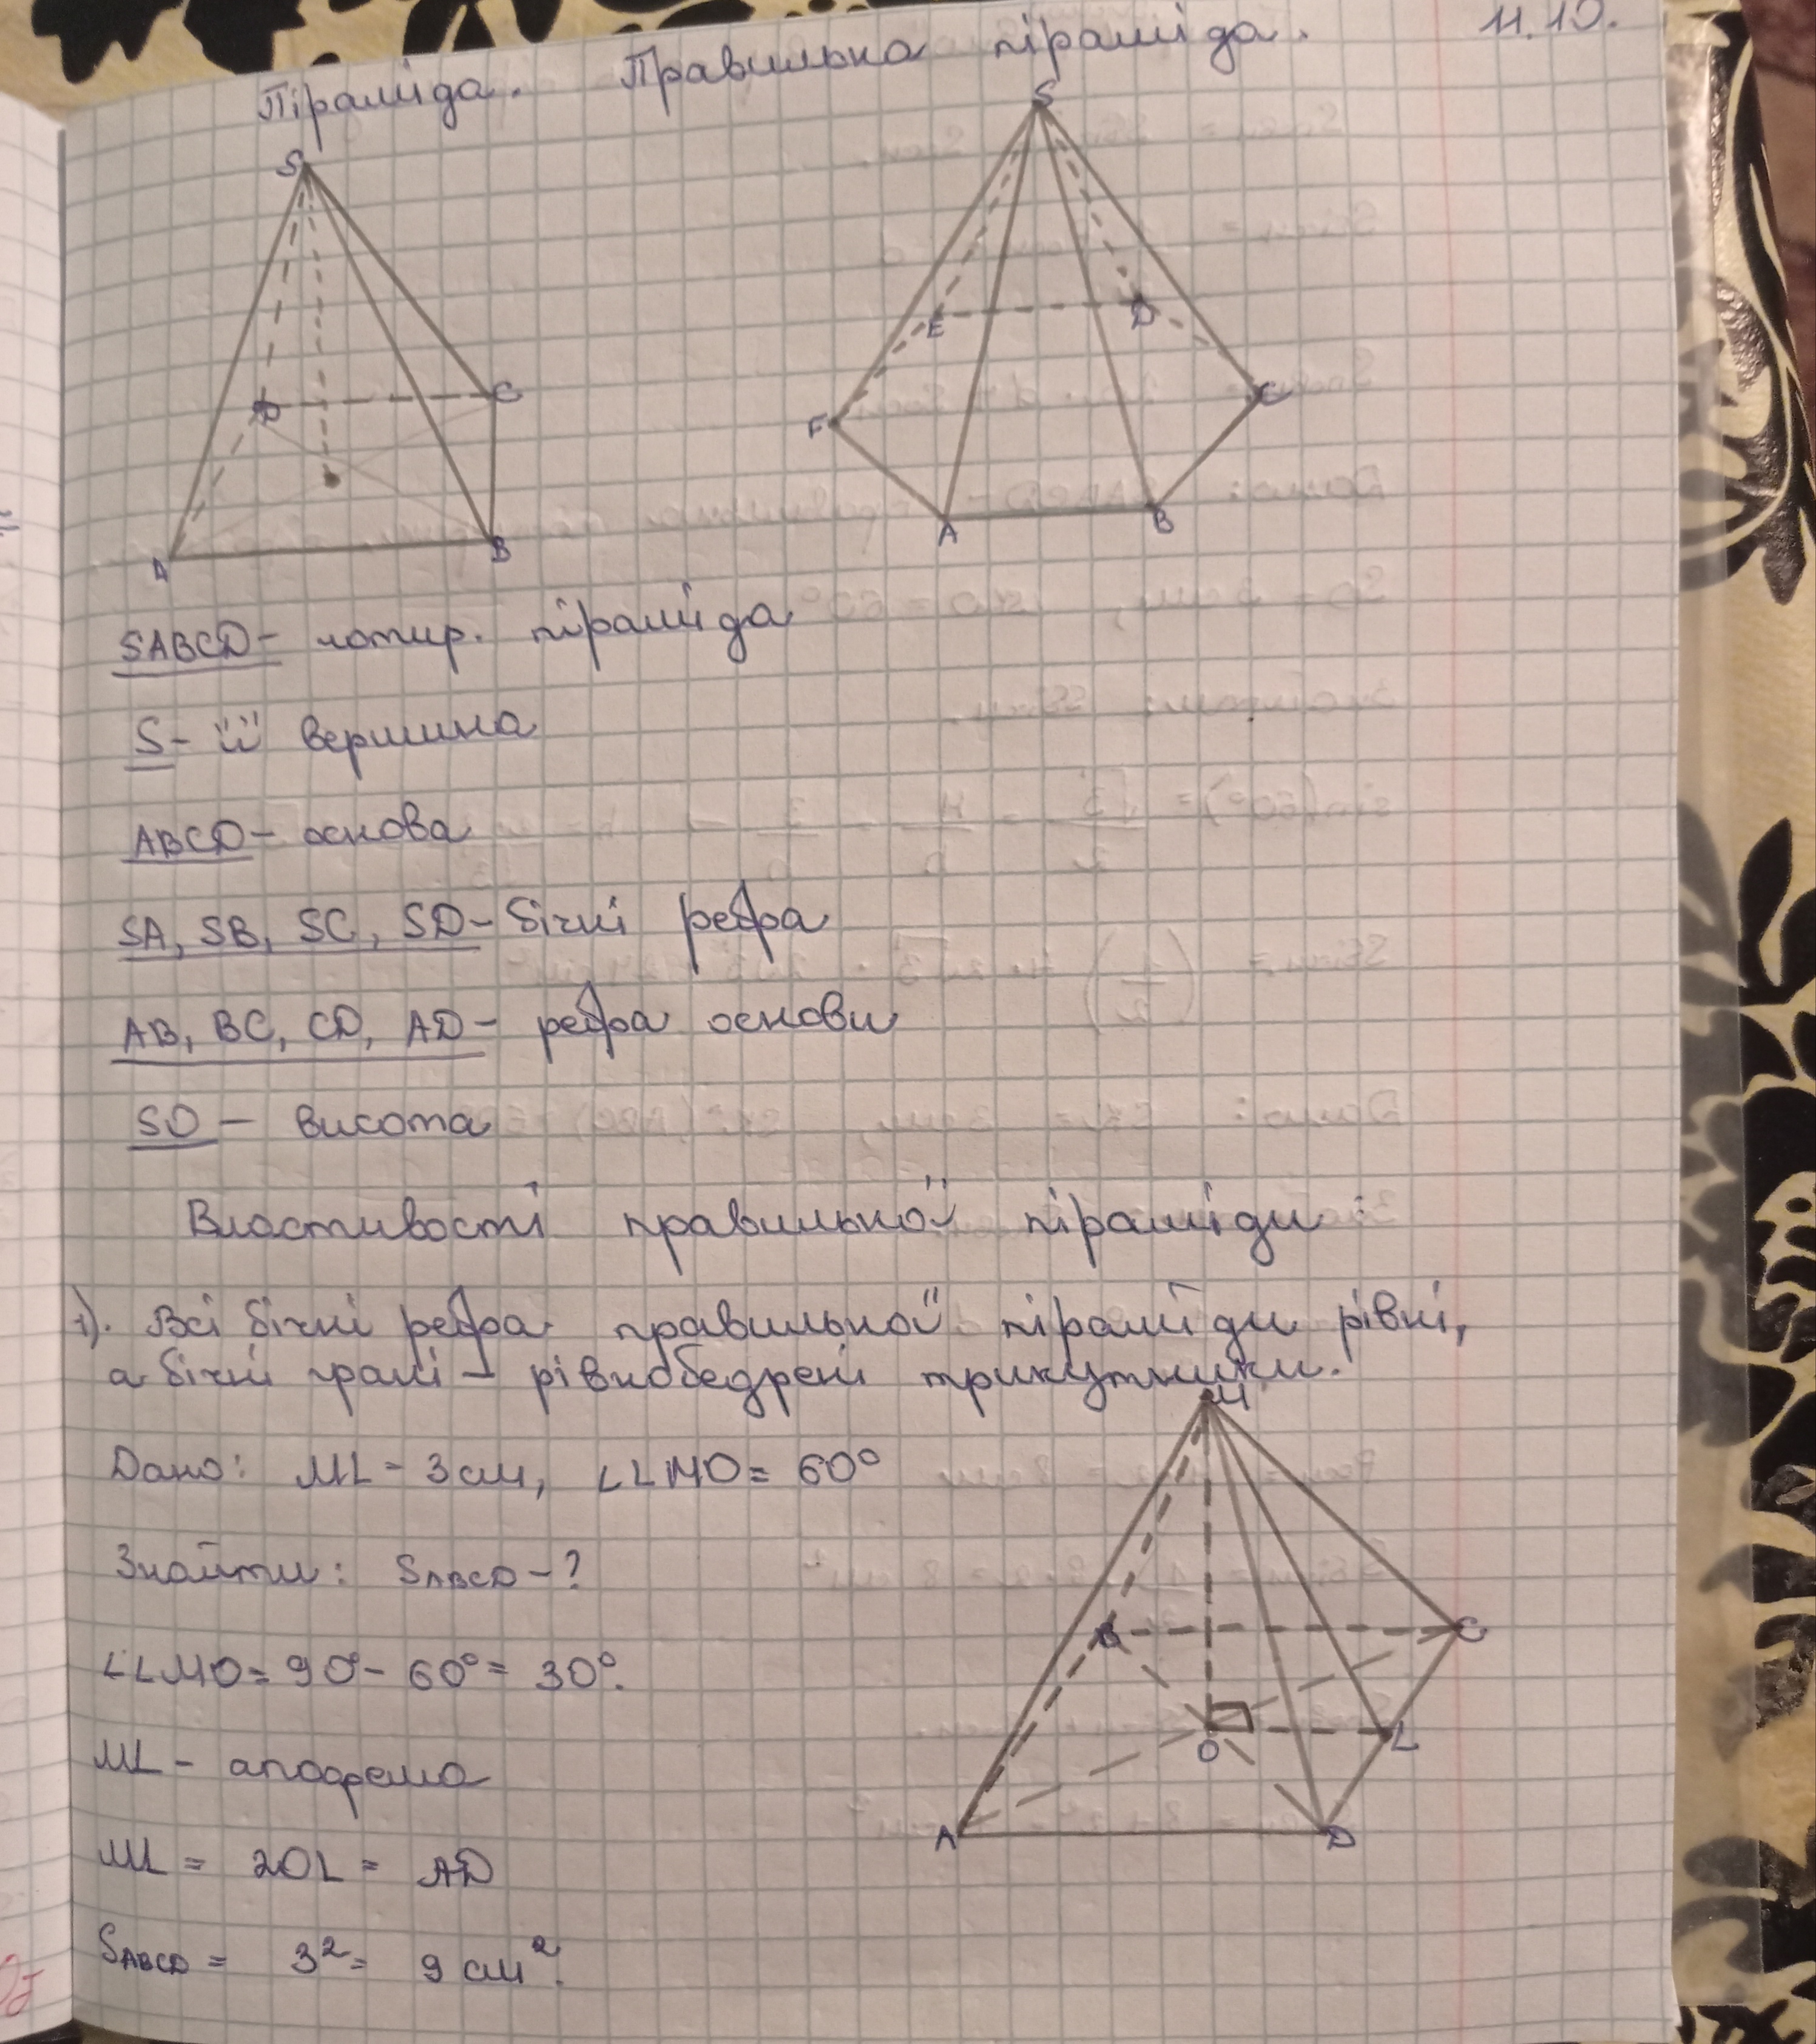 Піраміда. Правильна піраміда. 11.10.
S
S
E
D
D
C
F
C
A
B
A
B
SABCD - чотир. піраміда
S - її вершина
ABCD - основа
SA, SB, SC, SD - бічні ребра
AB, BC, CD, AD - ребра основи
SO - висота
Властивості правильної піраміди:
1). Всі бічні ребра правильної піраміди рівні,
а бічні грані - рівнобедрені трикутники.
M
Дано: ML - 3 см, ∠LMO = 60°
Знайти: SABCD - ?
B
C
∠LMO = 90° - 60° = 30°.
O
L
ML - апофема
A
D
ML = 2OL = AD
SABCD = 3² = 9 см².